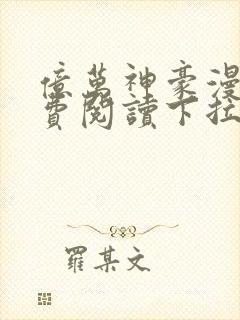 億萬神豪漫
費閱讀下拉
羅某文